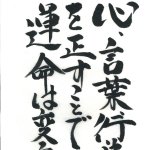 心、言葉行
を正すことで
運命は変